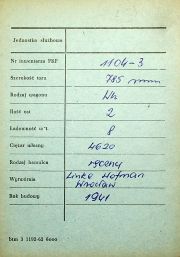 Jednostka służbowa
Nr inwentarza PKP 1104-3
Szerokość toru 785 mm
Rodzaj wagonu Wk
Ilość osi 2
Ładowność w t. 8
Ciężar własny 4620
Rodzaj hamulca ręczny
Wytwórnia Linke Hofman Wrocław
Rok budowy 1941
btm 3 1192-62 6000